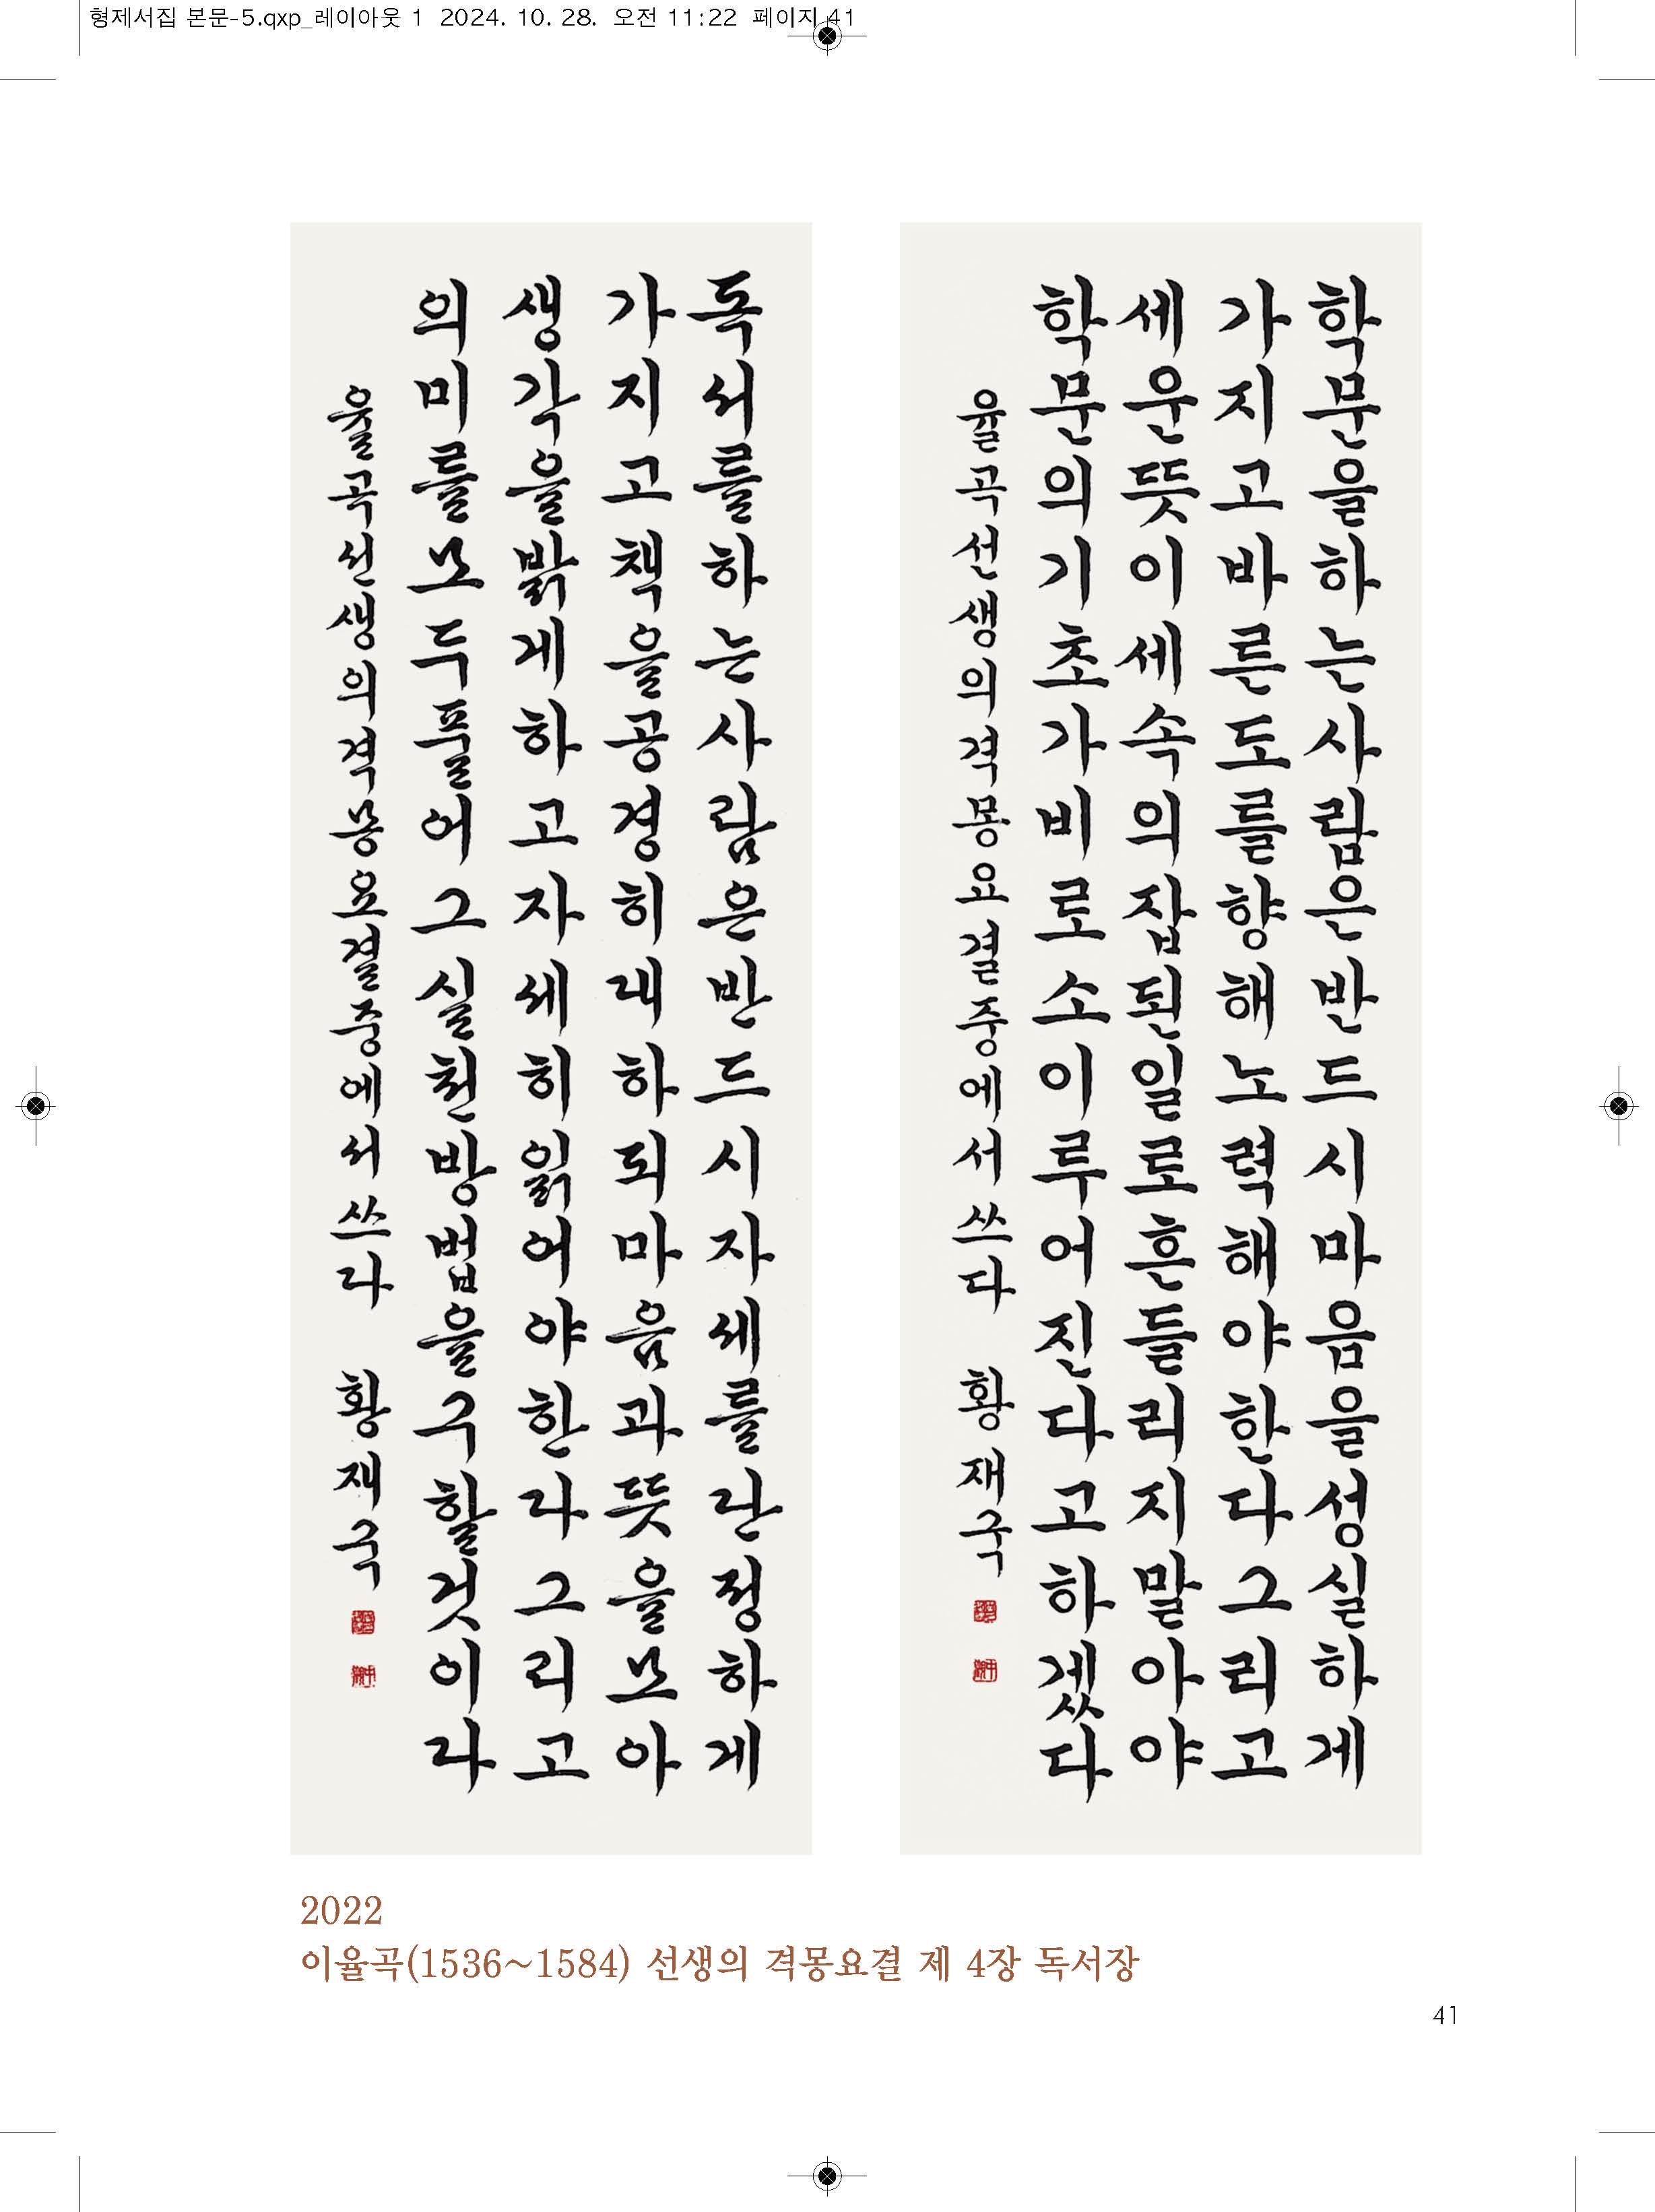 형제서집 본문-5.qxp_레이아웃 1 2024. 10. 28. 오전 11:22 페이지 41
학문을하는사람은반드시마음을성실하게
가지고바른도를향해노력해야한다그리고
세운뜻이세속의잡된일로흔들리지말아야
학문의기초가비로소이루어진다고하겠다
율곡선생의격몽요결중에서쓰다 황재국
독서를하는사람은반드시자세를단정하게
가지고책을공경히대하되마음과뜻을모아
생각을밝게하고자세히읽어야한다그리고
의미를모두풀어그실천방법을구할것이다
율곡선생의격몽요결중에서쓰다 황재국
2022
이율곡(1536~1584) 선생의 격몽요결 제 4장 독서장
41